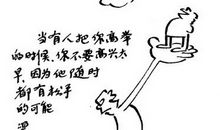 当有人把你高举
的时候,你不要高兴太
早,因为他随时
都有松手
的可能